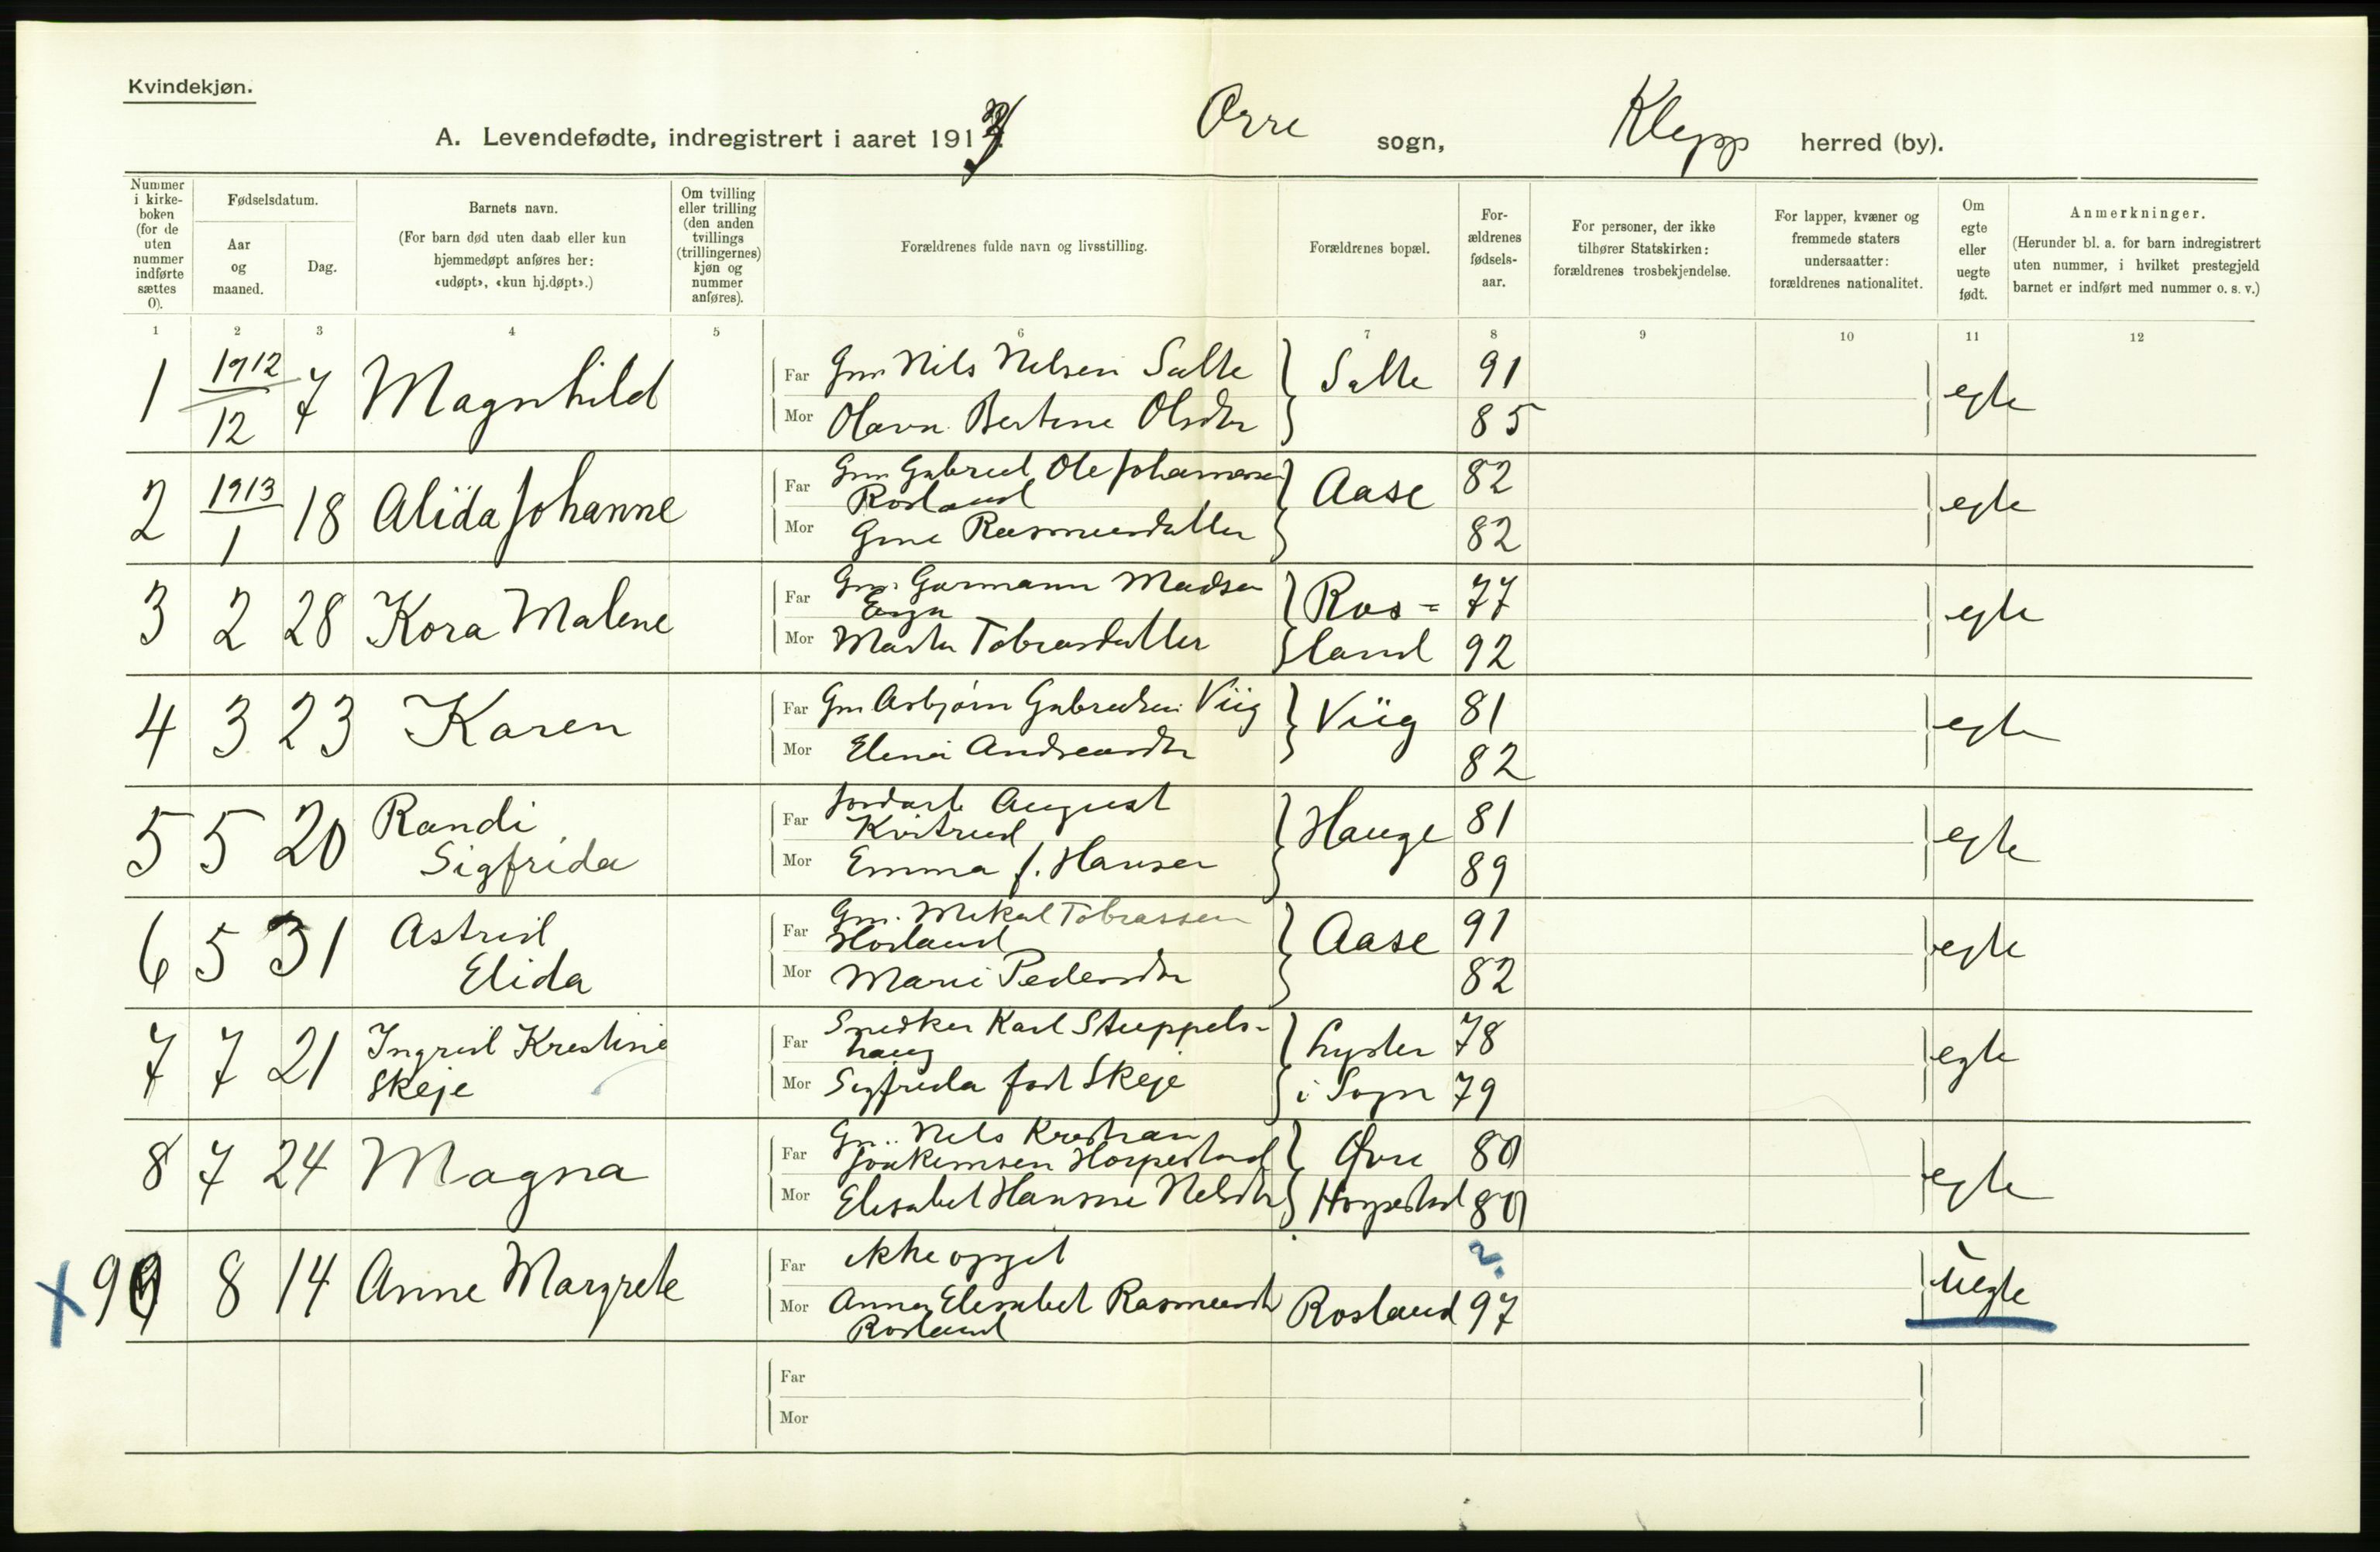 Kvindekjøn.
A. Levendefødte, indregistrert i aaret 1913. Orre sogn, Klepp herred (by).
Nummer i kirke-boken (for de uten nummer indførte sættes 0).
Fødselsdatum.
Aar og maaned.
Dag.
Barnets navn.
(For barn død uten daab eller kun hjemmedøpt anføres her: «udøpt», «kun hj.døpt».)
Om tvilling eller trilling (den anden tvillings (trillingernes) kjøn og nummer anføres).
Forældrenes fulde navn og livsstilling.
Forældrenes bopæl.
For-ældrenes fødsels-aar.
For personer, der ikke tilhører Statskirken: forældrenes trosbekjendelse.
For lapper, kvæner og fremmede staters undersaatter: forældrenes nationalitet.
Om egte eller uegte født.
Anmerkninger.
(Herunder bl. a. for barn indregistrert uten nummer, i hvilket prestegjeld barnet er indført med nummer o. s. v.)
1 2 3 4 5 6 7 8 9 10 11 12
1 1912/12 7 Magnhild Far Gm Nils Nilsen Salte Salte 91 egte
Mor Olava Bertine Olsdtr 85
2 1913/1 18 Alida Johanne Far Gm Gabriel Ole Johannessen Rosland Aase 82 egte
Mor Gine Rasmusdatter 82
3 2 28 Kora Malene Far Gm Garmann Madsen Ros= 77 egte
Mor Marta Tobiasdatter land 92
4 3 23 Karen Far Gm Asbjørn Gabrielsen Viig Viig 81 egte
Mor Eline Andreasdtr 82
5 5 20 Randi Sigfrida Far August Kvitrud Hauge 81 egte
Mor Emma f. Hansen 89
6 5 31 Astrid Elida Far Gm. Mikal Tobiassen Horland Aase 91 egte
Mor Marie Pedersdtr 82
7 7 21 Ingrid Kristine Skeje Far Snedker Karl Steppels-haug Lyster 78 egte
Mor Sigfrida født Skeje i Sogn 79
8 7 24 Magna Far Gm. Nils Kristian Joakimsen Horpestad Øvre 80 egte
Mor Elisabet Hansine Nilsdtr Horpestad 80
x 9 8 14 Anne Margrete Far ikke opgit ?. uegte
Mor Anna Elisabet Rasmusdtr Rosland Rosland 97
Far
Mor